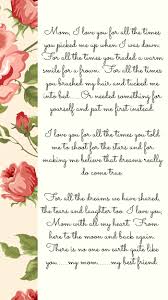 Mom, I love you for all the times
you picked me up when I was down.
For all the times you traded a warm
smile for a frown. For all the times
you brushed my hair and tucked me
into bed.... Or needed something for
yourself and put me first instead.
I love you for all the times you told
me to shoot for the stars and for
making me believe that dreams really
do come true.
For all the dreams we have shared,
the tears and laughter too. I love you,
Mom with all my heart. From
here to the moon and back again.
There is no one on earth quite like
you.....my mom.....my best friend.